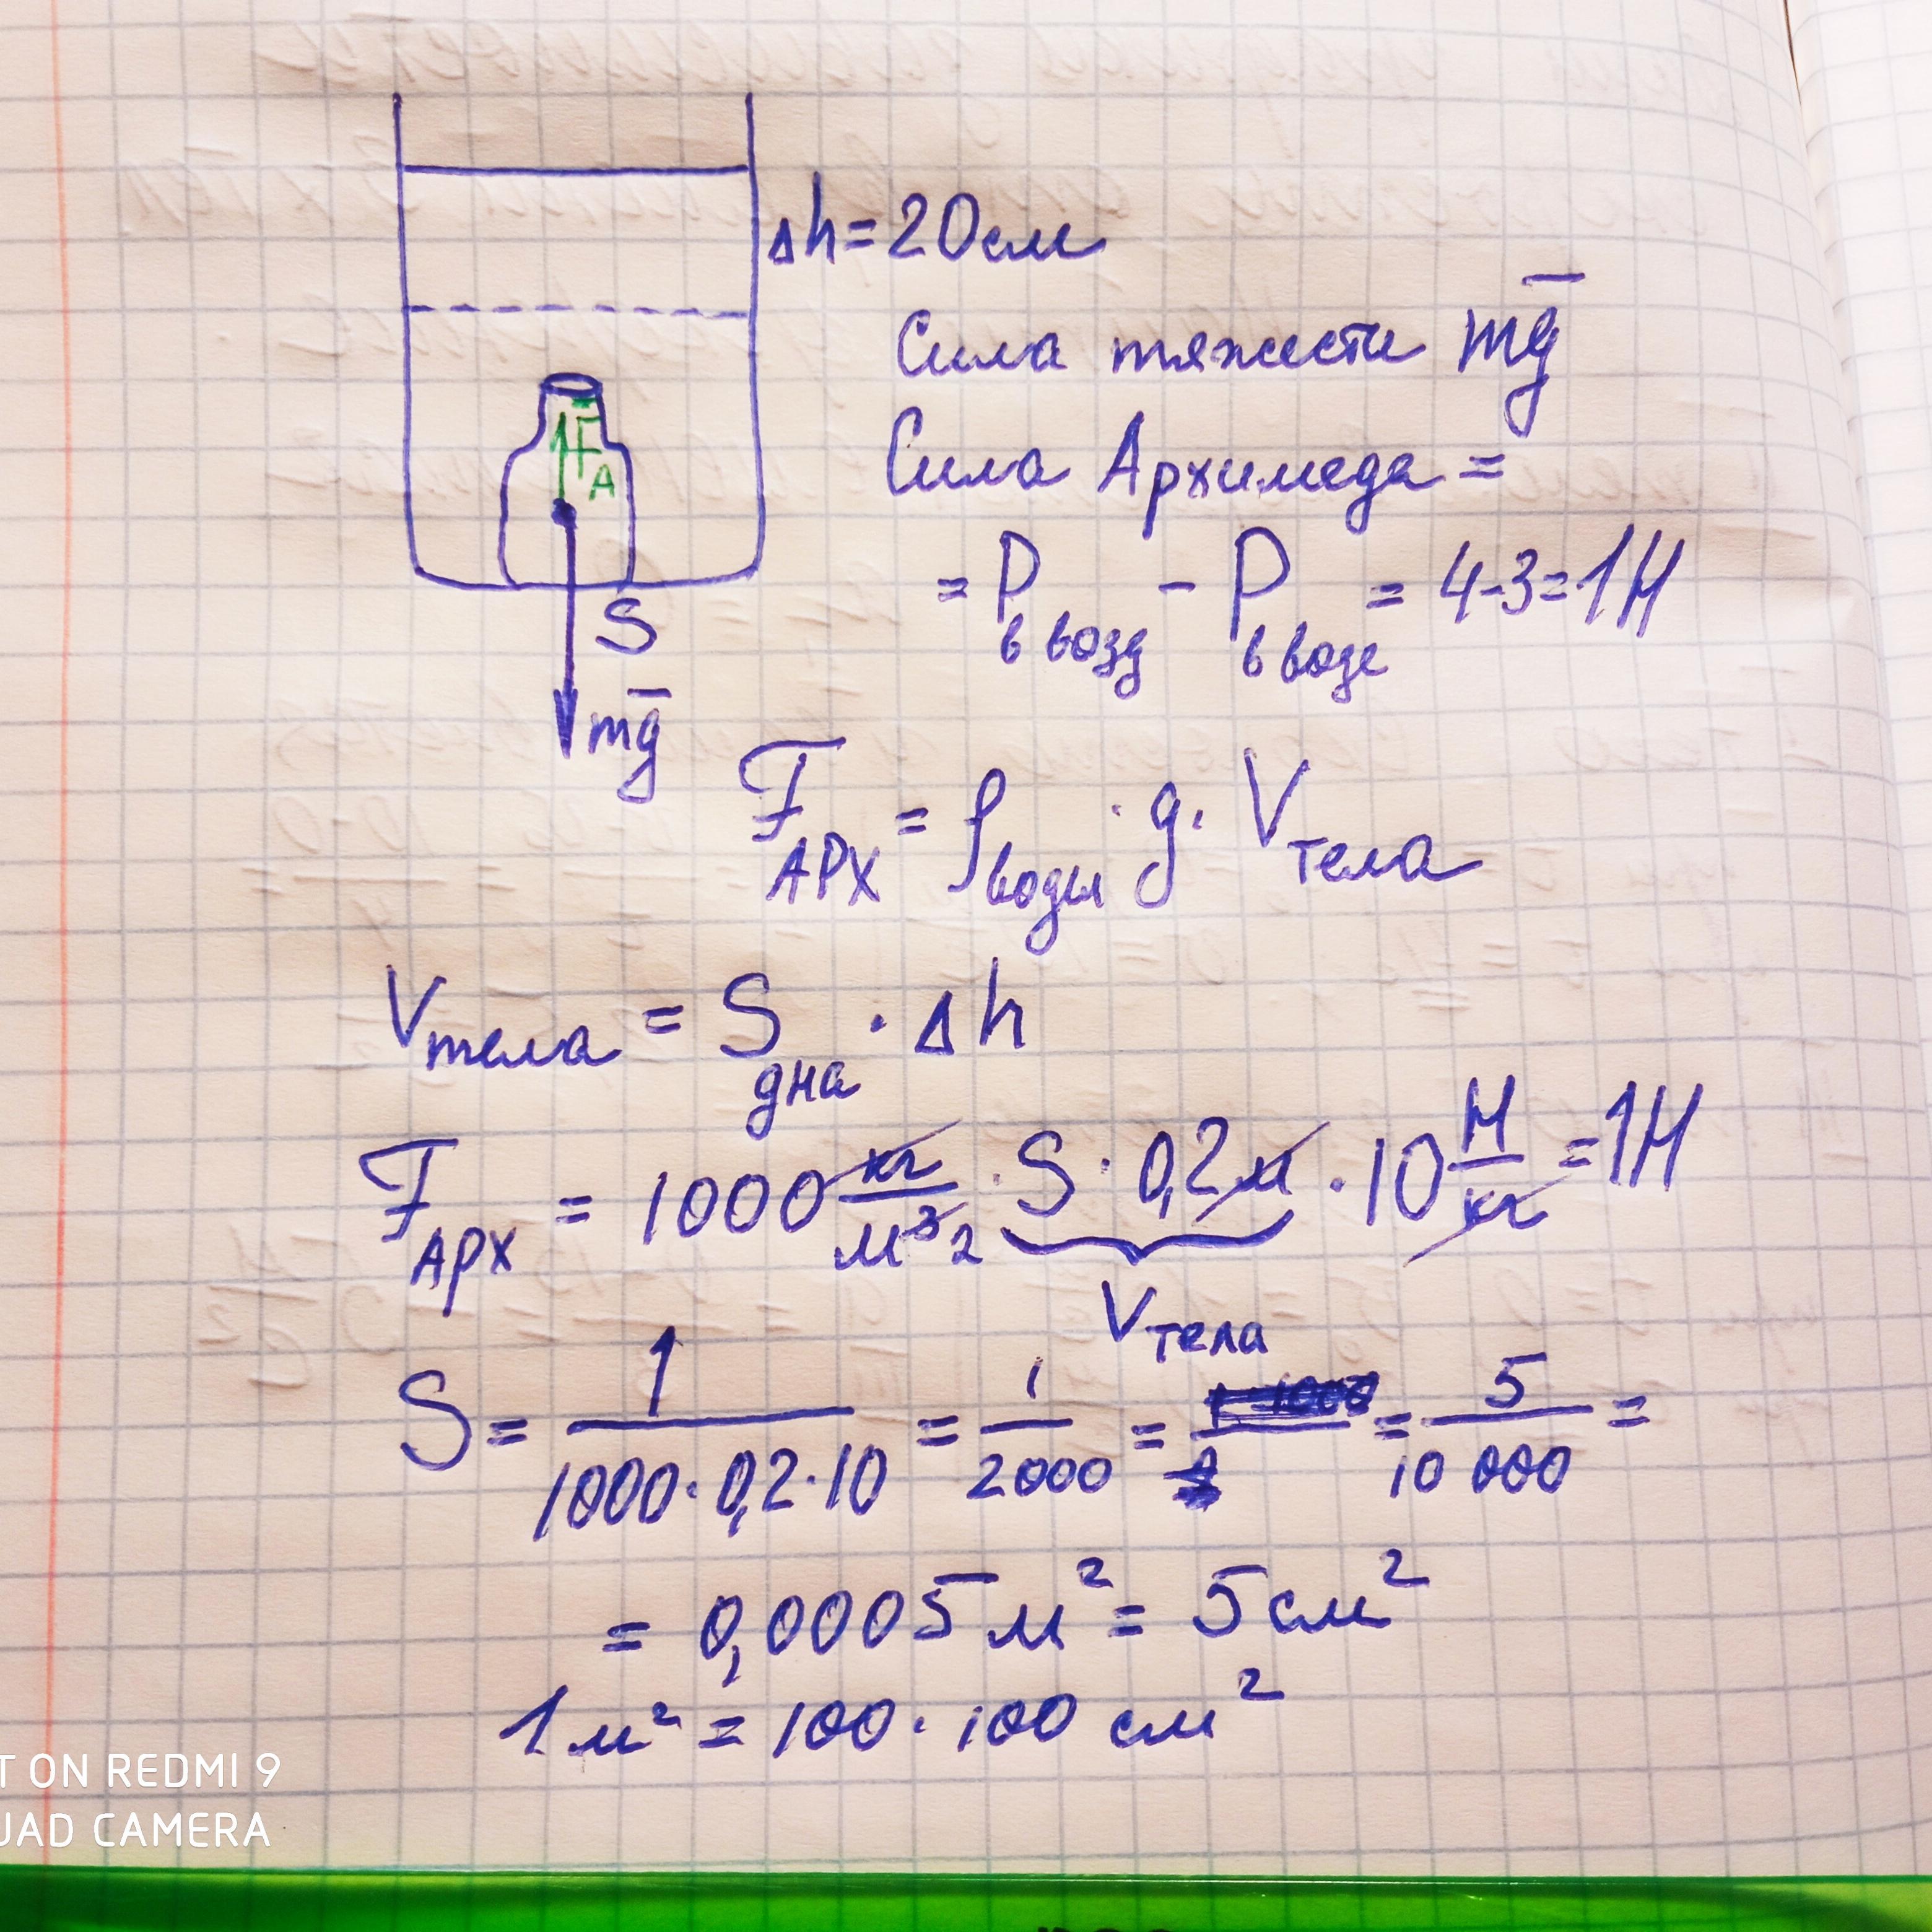 Δh = 20 см
Сила тяжести mg̅
F̅
A
Сила Архимеда =
= P в возд - P в воде = 4-3=1Н
S
mg̅
F АРХ = ρ воды · g · V тела
V тела = S дна · Δh
F АРХ = 1000 кг/м³ 2 · S · 0,2 м · 10 Н/кг = 1Н
V тела
S = 1/(1000·0,2·10) = 1/2000 = = 5/10 000 =
= 0,0005 м² = 5 см²
1 м² = 100 · 100 см²
T ON REDMI 9
UAD CAMERA